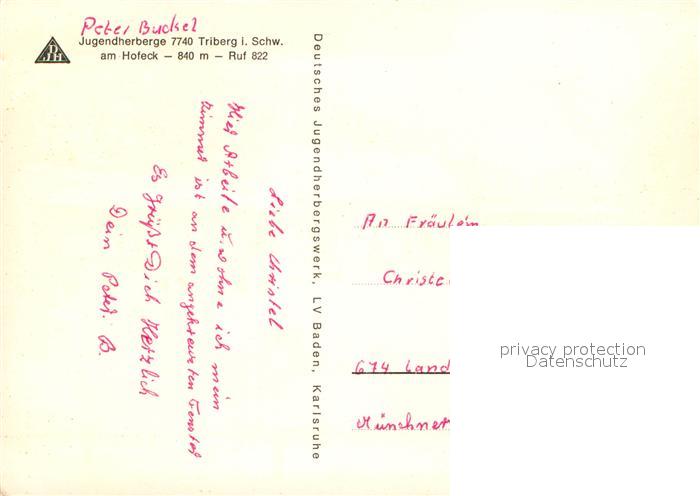 Peter Buckel
DJH
Jugendherberge 7740 Triberg i. Schw.
am Hofeck – 840 m – Ruf 822
Deutsches Jugendherbergswerk, LV Baden, Karlsruhe
Liebe Christel
Hier Arbeite u. wohne ich mein
zimmer ist an dem angekreuzten Fenster
Es grüßt Dich Herzlich
Dein Peter. B.
An Fräulein
Christe
674 Land
Münchner
privacy protection
Datenschutz